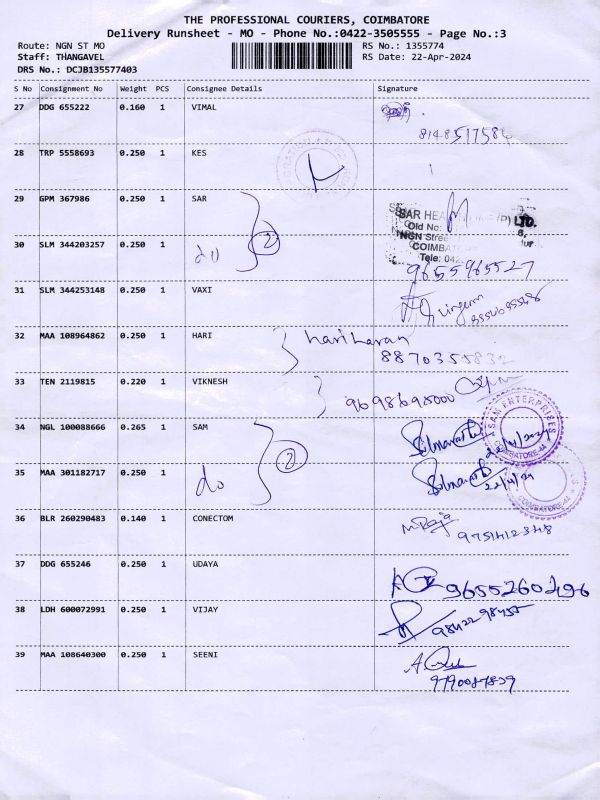 THE PROFESSIONAL COURIERS, COIMBATORE
Delivery Runsheet - MO - Phone No.:0422-3505555 - Page No.:3
Route: NGN ST MO RS No.: 1355774
Staff: THANGAVEL RS Date: 22-Apr-2024
DRS No.: DCJB135577403
S No Consignment No Weight PCS Consignee Details Signature
27 DDG 655222 0.160 1 VIMAL
8148517584
28 TRP 5558693 0.250 1 KES
29 GPM 367986 0.250 1 SAR
SAR HEA (P) LTD.
Old No:
NGN Stree
COIMBAT
Tele: 042
30 SLM 344203257 0.250 1 do 2
9655965527
31 SLM 344253148 0.250 1 VAXI
32 MAA 108964862 0.250 1 HARI hariharan
8870355832
33 TEN 2119815 0.220 1 VIKNESH
9698698000
34 NGL 100088666 0.265 1 SAM
SAM ENTERPRISES
COIMBATORE-44
22/4/2024
35 MAA 301182717 0.250 1 do 2
22/4/24
COIMBATORE-44
36 BLR 260290483 0.140 1 CONECTOM M Raja
9751412348
37 DDG 655246 0.250 1 UDAYA
9655260296
38 LDH 600072991 0.250 1 VIJAY
9842298455
39 MAA 108640300 0.250 1 SEENI
9790087839